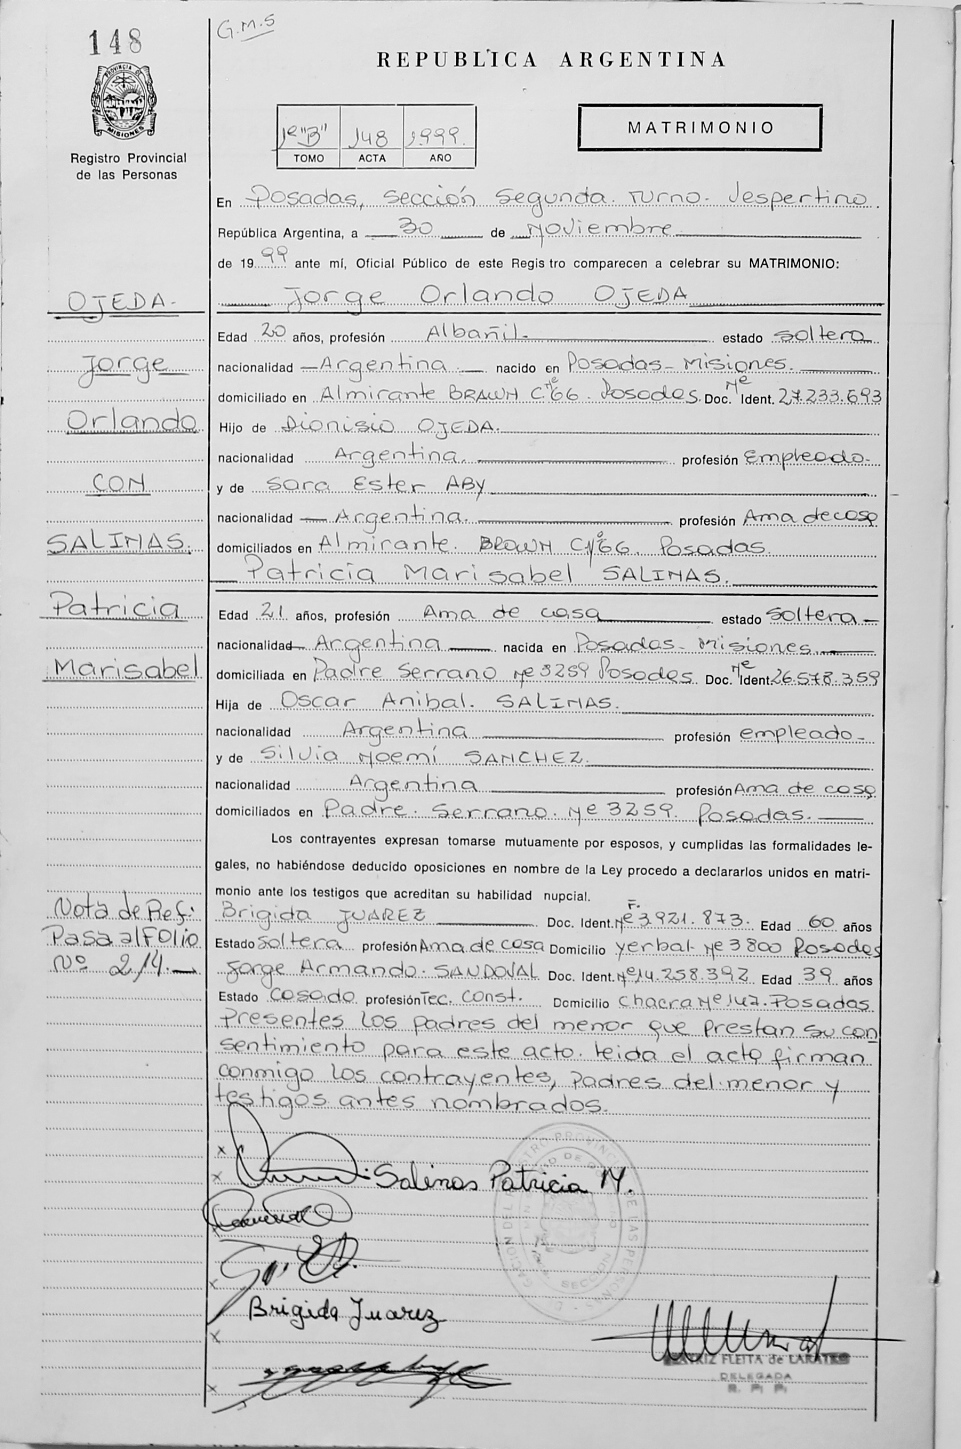 148
G.M.S
REPUBLICA ARGENTINA
PROVINCIA DE MISIONES
Registro Provincial
de las Personas
1º "B" 148 1999.
TOMO ACTA AÑO
MATRIMONIO
En Posadas, sección segunda. Turno. Vespertino
República Argentina, a 30 de Noviembre
de 1999 ante mí, Oficial Público de este Registro comparecen a celebrar su MATRIMONIO:
Jorge Orlando OJEDA
Edad 20 años, profesión Albañil. estado soltera
nacionalidad Argentina nacido en Posadas - Misiones.
domiciliado en Almirante BROWN C Nº 66. Posadas. Doc. Ident. Nº 27.233.693
Hijo de Dionisio OJEDA.
nacionalidad Argentina. profesión Empleado.
y de Sara Ester ABY
nacionalidad Argentina. profesión Ama de casa
domiciliados en Almirante. BROWN C Nº 66. Posadas.
Patricia Marisabel SALINAS.
Edad 21 años, profesión Ama de casa estado soltera
nacionalidad Argentina nacida en Posadas - Misiones
domiciliada en Padre Serrano Nº 3259 Posadas Doc. Ident. Nº 26.578.359
Hija de Oscar Anibal. SALINAS.
nacionalidad Argentina profesión empleado
y de Silvia Noemí SANCHEZ.
nacionalidad Argentina profesión Ama de casa
domiciliados en Padre. Serrano. Nº 3259. Posadas.
Los contrayentes expresan tomarse mutuamente por esposos, y cumplidas las formalidades le-
gales, no habiéndose deducido oposiciones en nombre de la Ley procedo a declararlos unidos en matri-
monio ante los testigos que acreditan su habilidad nupcial.
Brigida JUAREZ Doc. Ident. Nº F. 3.921.873. Edad 60 años
Estado Soltera profesión Ama de casa Domicilio yerbal Nº 3800 Posadas
Jorge Armando. SANDOVAL Doc. Ident. Nº 14.258.392 Edad 39 años
Estado Casado profesión Tec. Const. Domicilio chacra Nº 147. Posadas
Presentes los padres del menor que prestan su con
sentimiento para este acto. Leida el acta firman
conmigo los contrayentes, padres del menor y
testigos antes nombrados.
OJEDA
Jorge
Orlando
CON
SALINAS.
Patricia
Marisabel
Nota de Ref:
Pasa al Folio
Nº 214.
Salinas Patricia M.
Brigida Juarez
FLEITA de
DELEGADA
R. P. P.